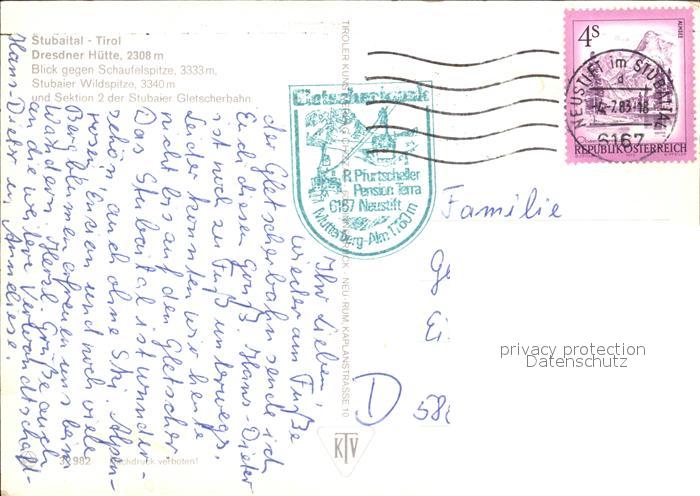 Stubaital - Tirol
Dresdner Hütte, 2308 m
Blick gegen Schaufelspitze, 3333 m,
Stubaier Wildspitze, 3340 m
und Sektion 2 der Stubaier Gletscherbahn
Ihr Lieben,
wieder am Fuße
der Gletscherbahn sende ich
Euch diesen Gruß. Hans-Dieter
ist noch zu Fuß unterwegs.
Leider konnten wir heute
nicht bis auf den Gletscher.
Das Stubaital ist wunder-
schön, auch ohne Ski. Alpen-
rosen, Enzian und noch viele
Bergblumen erfreuen uns beim
Wandern. Herzl. Grüße auch
an die weitere Verwandtschaft
Hans-Dieter u. Anneliese.
32 982 Nachdruck verboten!
TIROLER KUNST
NEU-RUM KAPLANSTRASSE 10
KTV
R. Pfurtscheller
Pension Terra
6167 Neustift
Mutterberg-Alm 1760 m
4S
ALMSEE
REPUBLIK ÖSTERREICH
NEUSTIFT im STUBAITAL
d
7.83-18
6167
Familie
G
Ei
D 58
privacy protection
Datenschutz